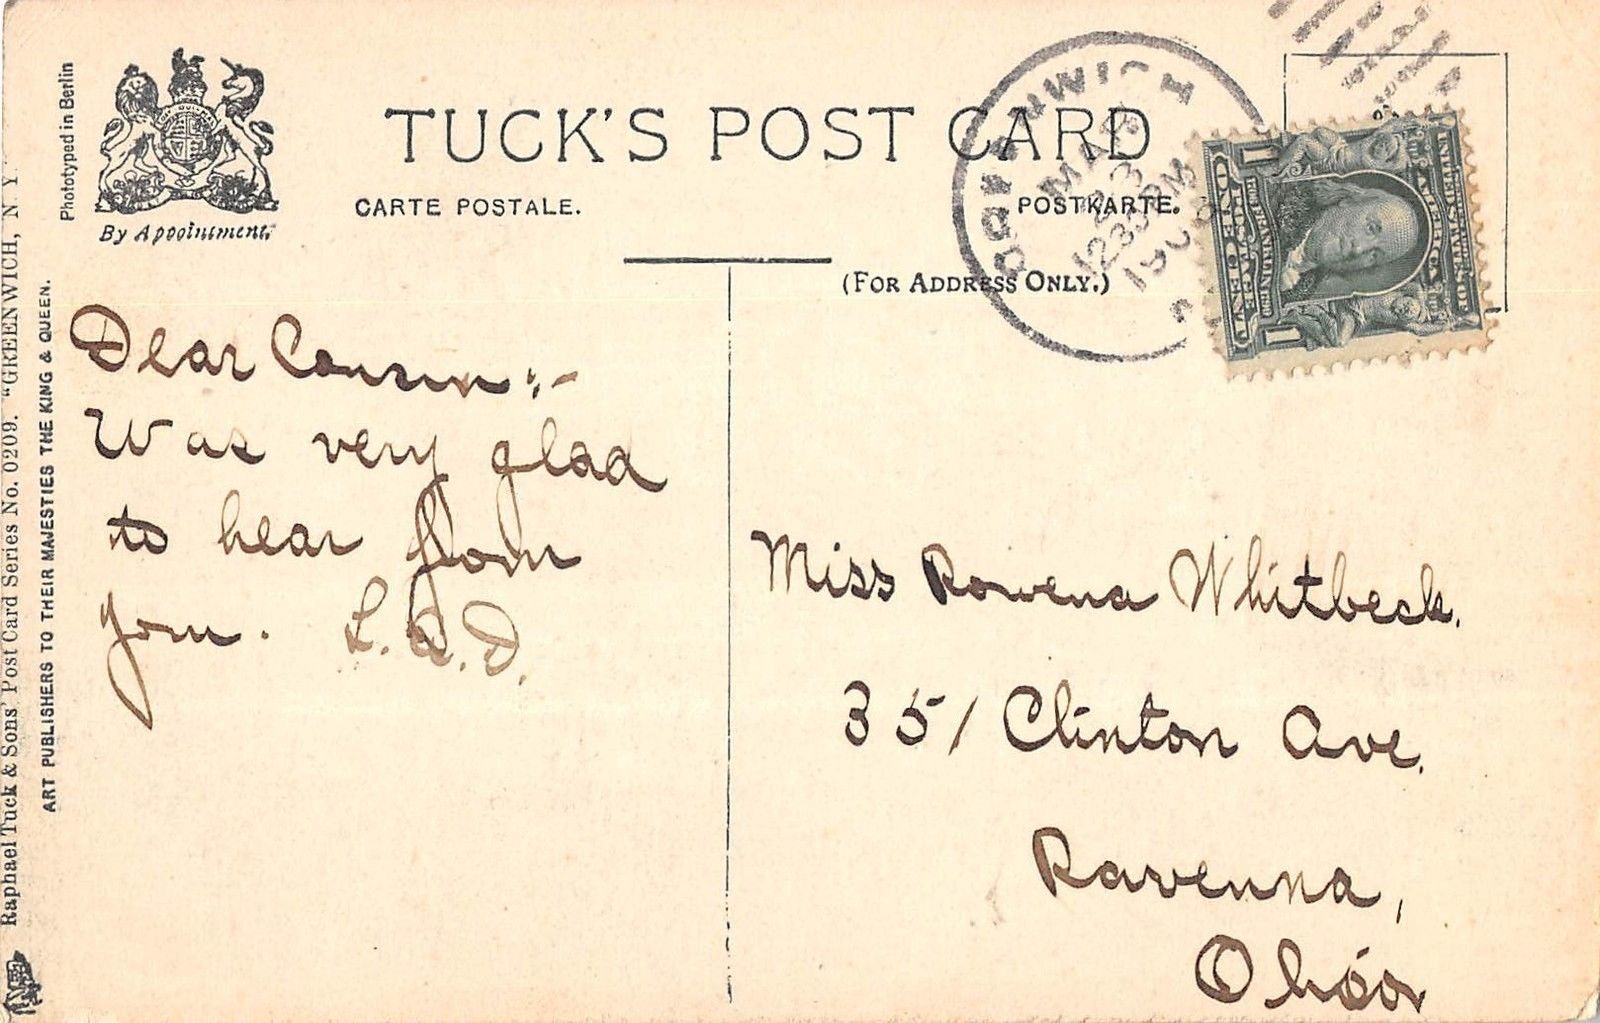 Phototyped in Berlin
By Appointment
TUCK'S POST CARD
CARTE POSTALE.
POSTKARTE.
(FOR ADDRESS ONLY.)
MAR
23
1230PM
UNITED STATES OF AMERICA
POSTAGE ONE CENT
1 1
Raphael Tuck & Sons' Post Card Series No. 0209. "GREENWICH, N. Y.
ART PUBLISHERS TO THEIR MAJESTIES THE KING & QUEEN.
Dear Cousin:-
Was very glad
to hear from
you. L.A.D.
Miss Rowena Whitbeck.
351 Clinton Ave.
Ravenna,
Ohio